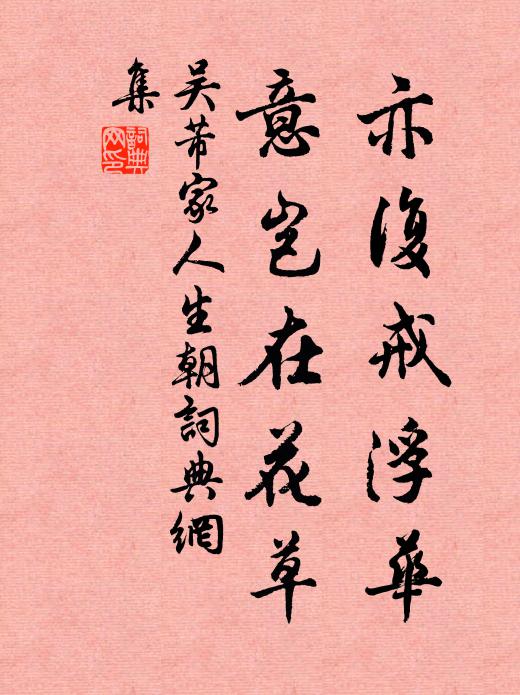 亦復戒浮華
意豈在花草
吴芾家人生朝詞典網
集
詞典網印